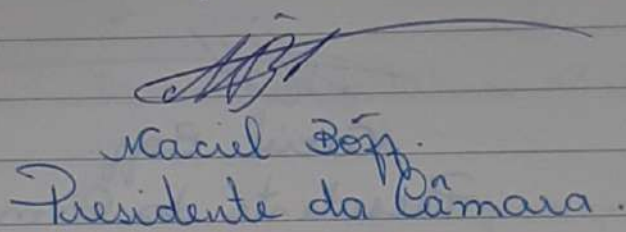 Maciel Böff.
Presidente da Câmara.